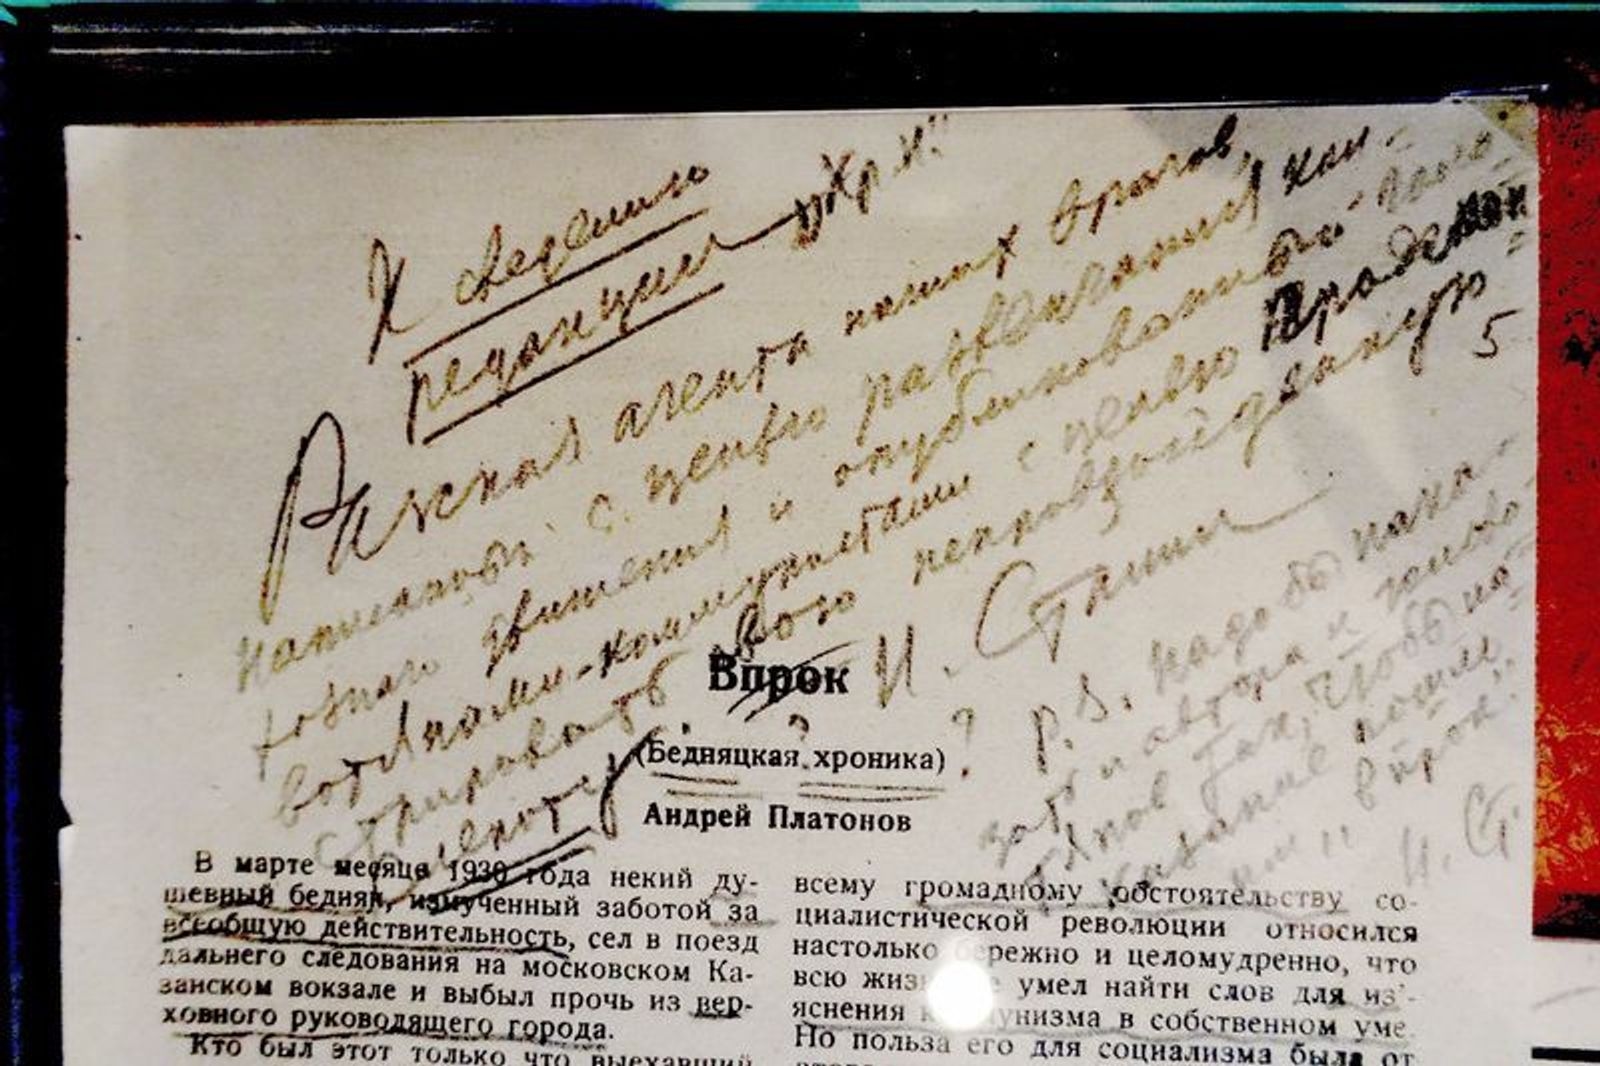 К сведению
редакции „Кр. Н."
Рассказ агента наших врагов,
написанный с целью развенчания кол-
хозного движения и опубликованный голо-
вотяпами-коммунистами с целью продемон-
стрировать свою непревзойденную
слепоту.
И. Сталин
5
P.S. Надо бы нака-
зать и автора и голово-
тяпов так, чтобы на-
казание пошло
им „впрок".
И. Ст.
Впрок
?
(Бедняцкая хроника) ?
Андрей Платонов
В марте месяце 1930 года некий ду-
шевный бедняк, измученный заботой за
всеобщую действительность, сел в поезд
дальнего следования на московском Ка-
занском вокзале и выбыл прочь из вер-
ховного руководящего города.
Кто был этот только что выехавший
всему громадному обстоятельству со-
циалистической революции относился
настолько бережно и целомудренно, что
всю умел найти слов для из'-
яснения в собственном уме
Но польза его для социализма была от